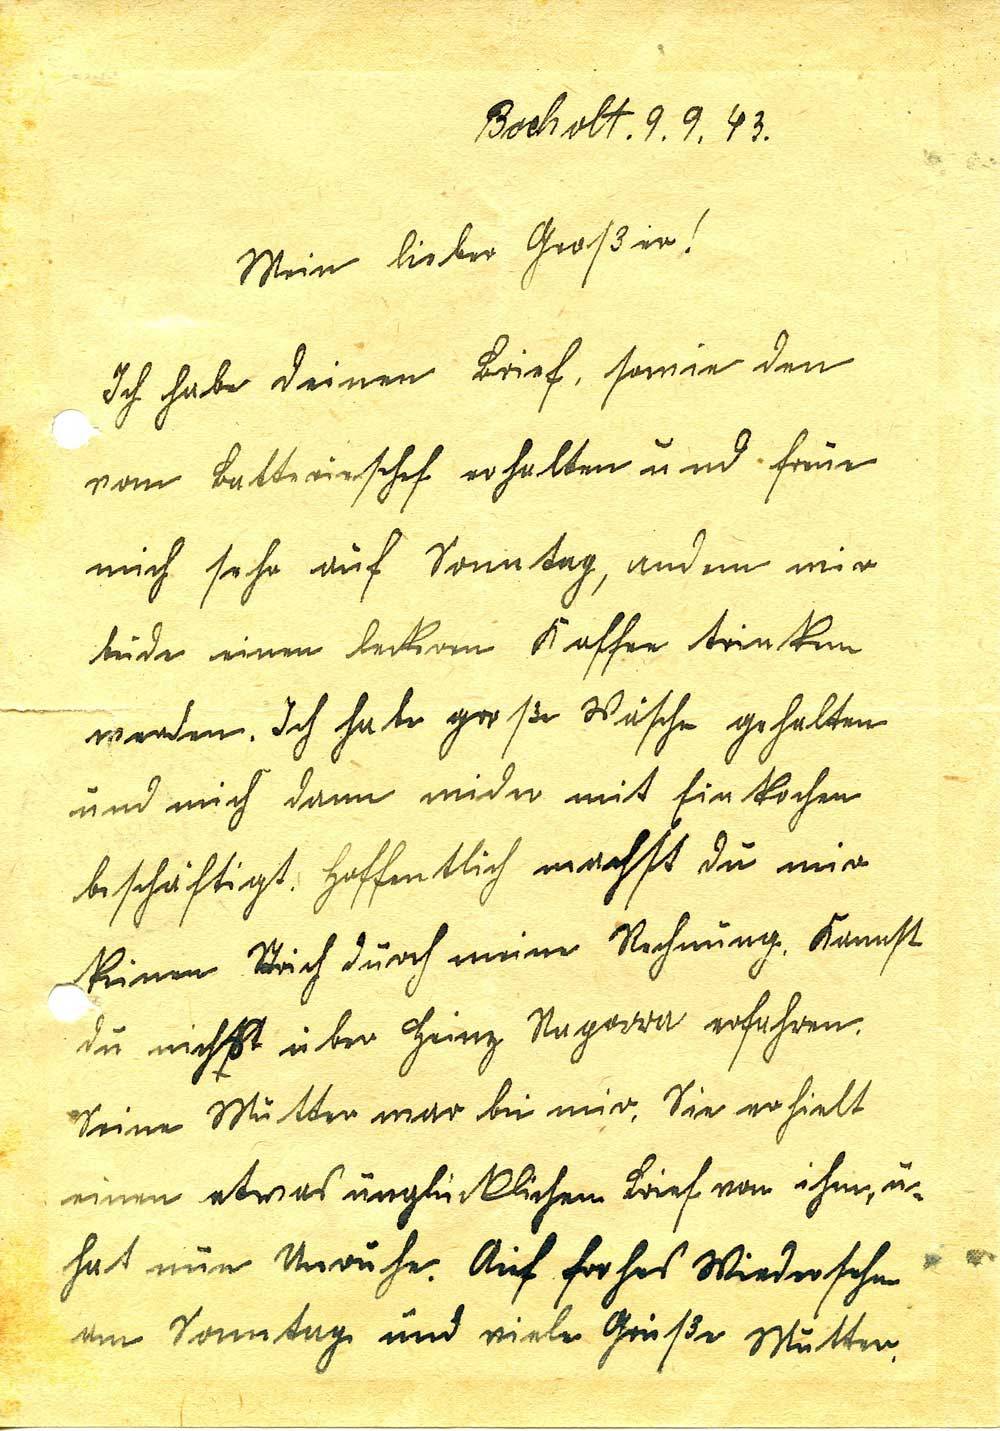 Bocholt. 9. 9. 43.
Mein lieber Großer!
Ich habe deinen Brief, sowie den
vom Batteriechef erhalten und freue
mich sehr auf Sonntag, an dem wir
beide einen leckeren Kaffee trinken
werden. Ich habe große Wäsche gehalten
und mich dann wider mit Einkochen
beschäftigt. Hoffentlich machst du mir
keinen Strich durch meine Rechnung. Kannst
du nichst über Heinz erfahren.
Seine Mutter war bei mir. Sie erhielt
einen etwas unglücklichen Brief von ihm, u.
hat nun Unruhe. Auf frohes Wiedersehn
am Sonntag und viele Grüße Mutter.